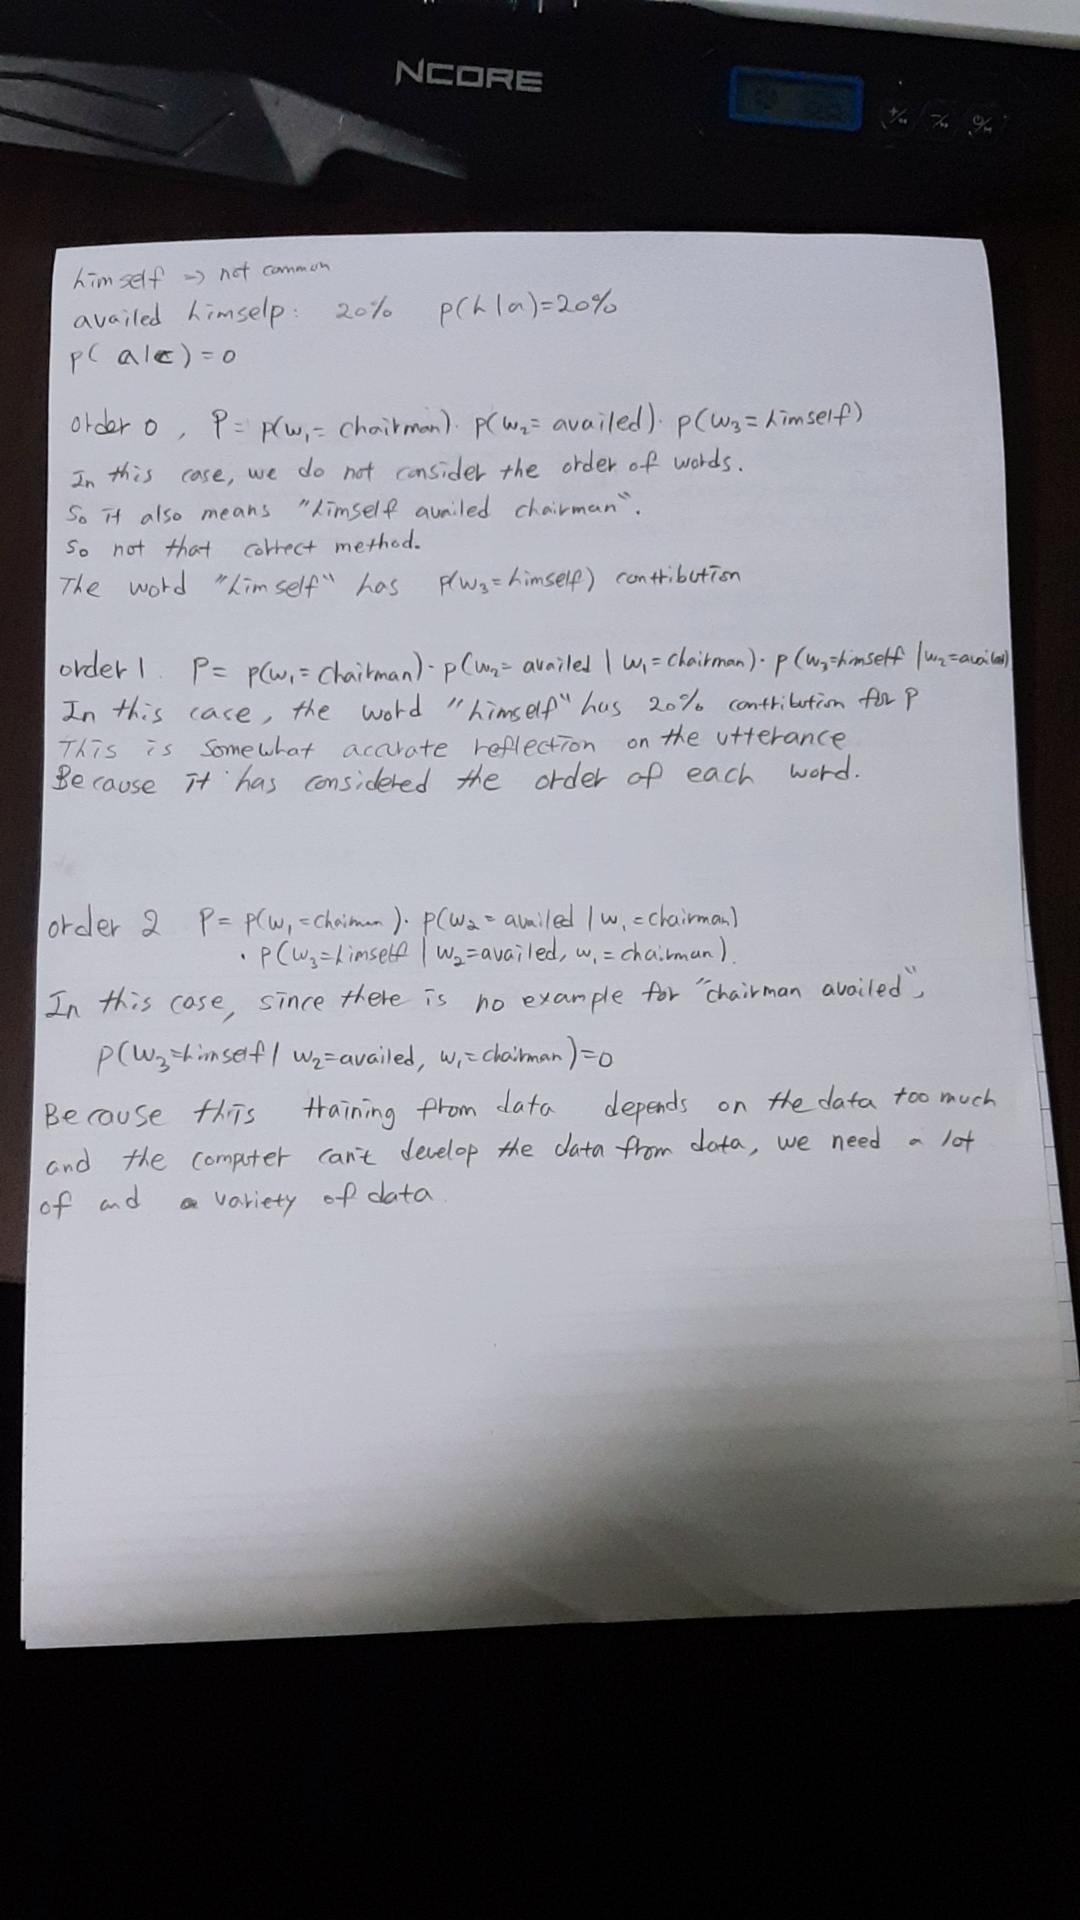 NCORE
himself => not common
availed himselp: 20% p(h|a)=20%
p(a|c)=0
order 0, P= p(w₁= chairman). p(w₂= availed). p(w₃= himself)
In this case, we do not consider the order of words.
So it also means "himself availed chairman".
So not that correct method.
The word "himself" has p(w₃=himself) contribution
order 1. P= p(w₁= chairman)· p(w₂= availed | w₁= chairman)· p(w₃=himself | w₂=availed)
In this case, the word "himself" has 20% contribution for P
This is somewhat accurate reflection on the utterance
Because it has considered the order of each word.
order 2 P= p(w₁=chairman). p(w₂= availed | w₁=chairman)
· p(w₃=himself | w₂=availed, w₁= chairman).
In this case, since there is no example for "chairman availed",
p(w₃=himself | w₂=availed, w₁= chairman)=0
Because this training from data depends on the data too much
and the computer can't develop the data from data, we need a lot
of and a variety of data.